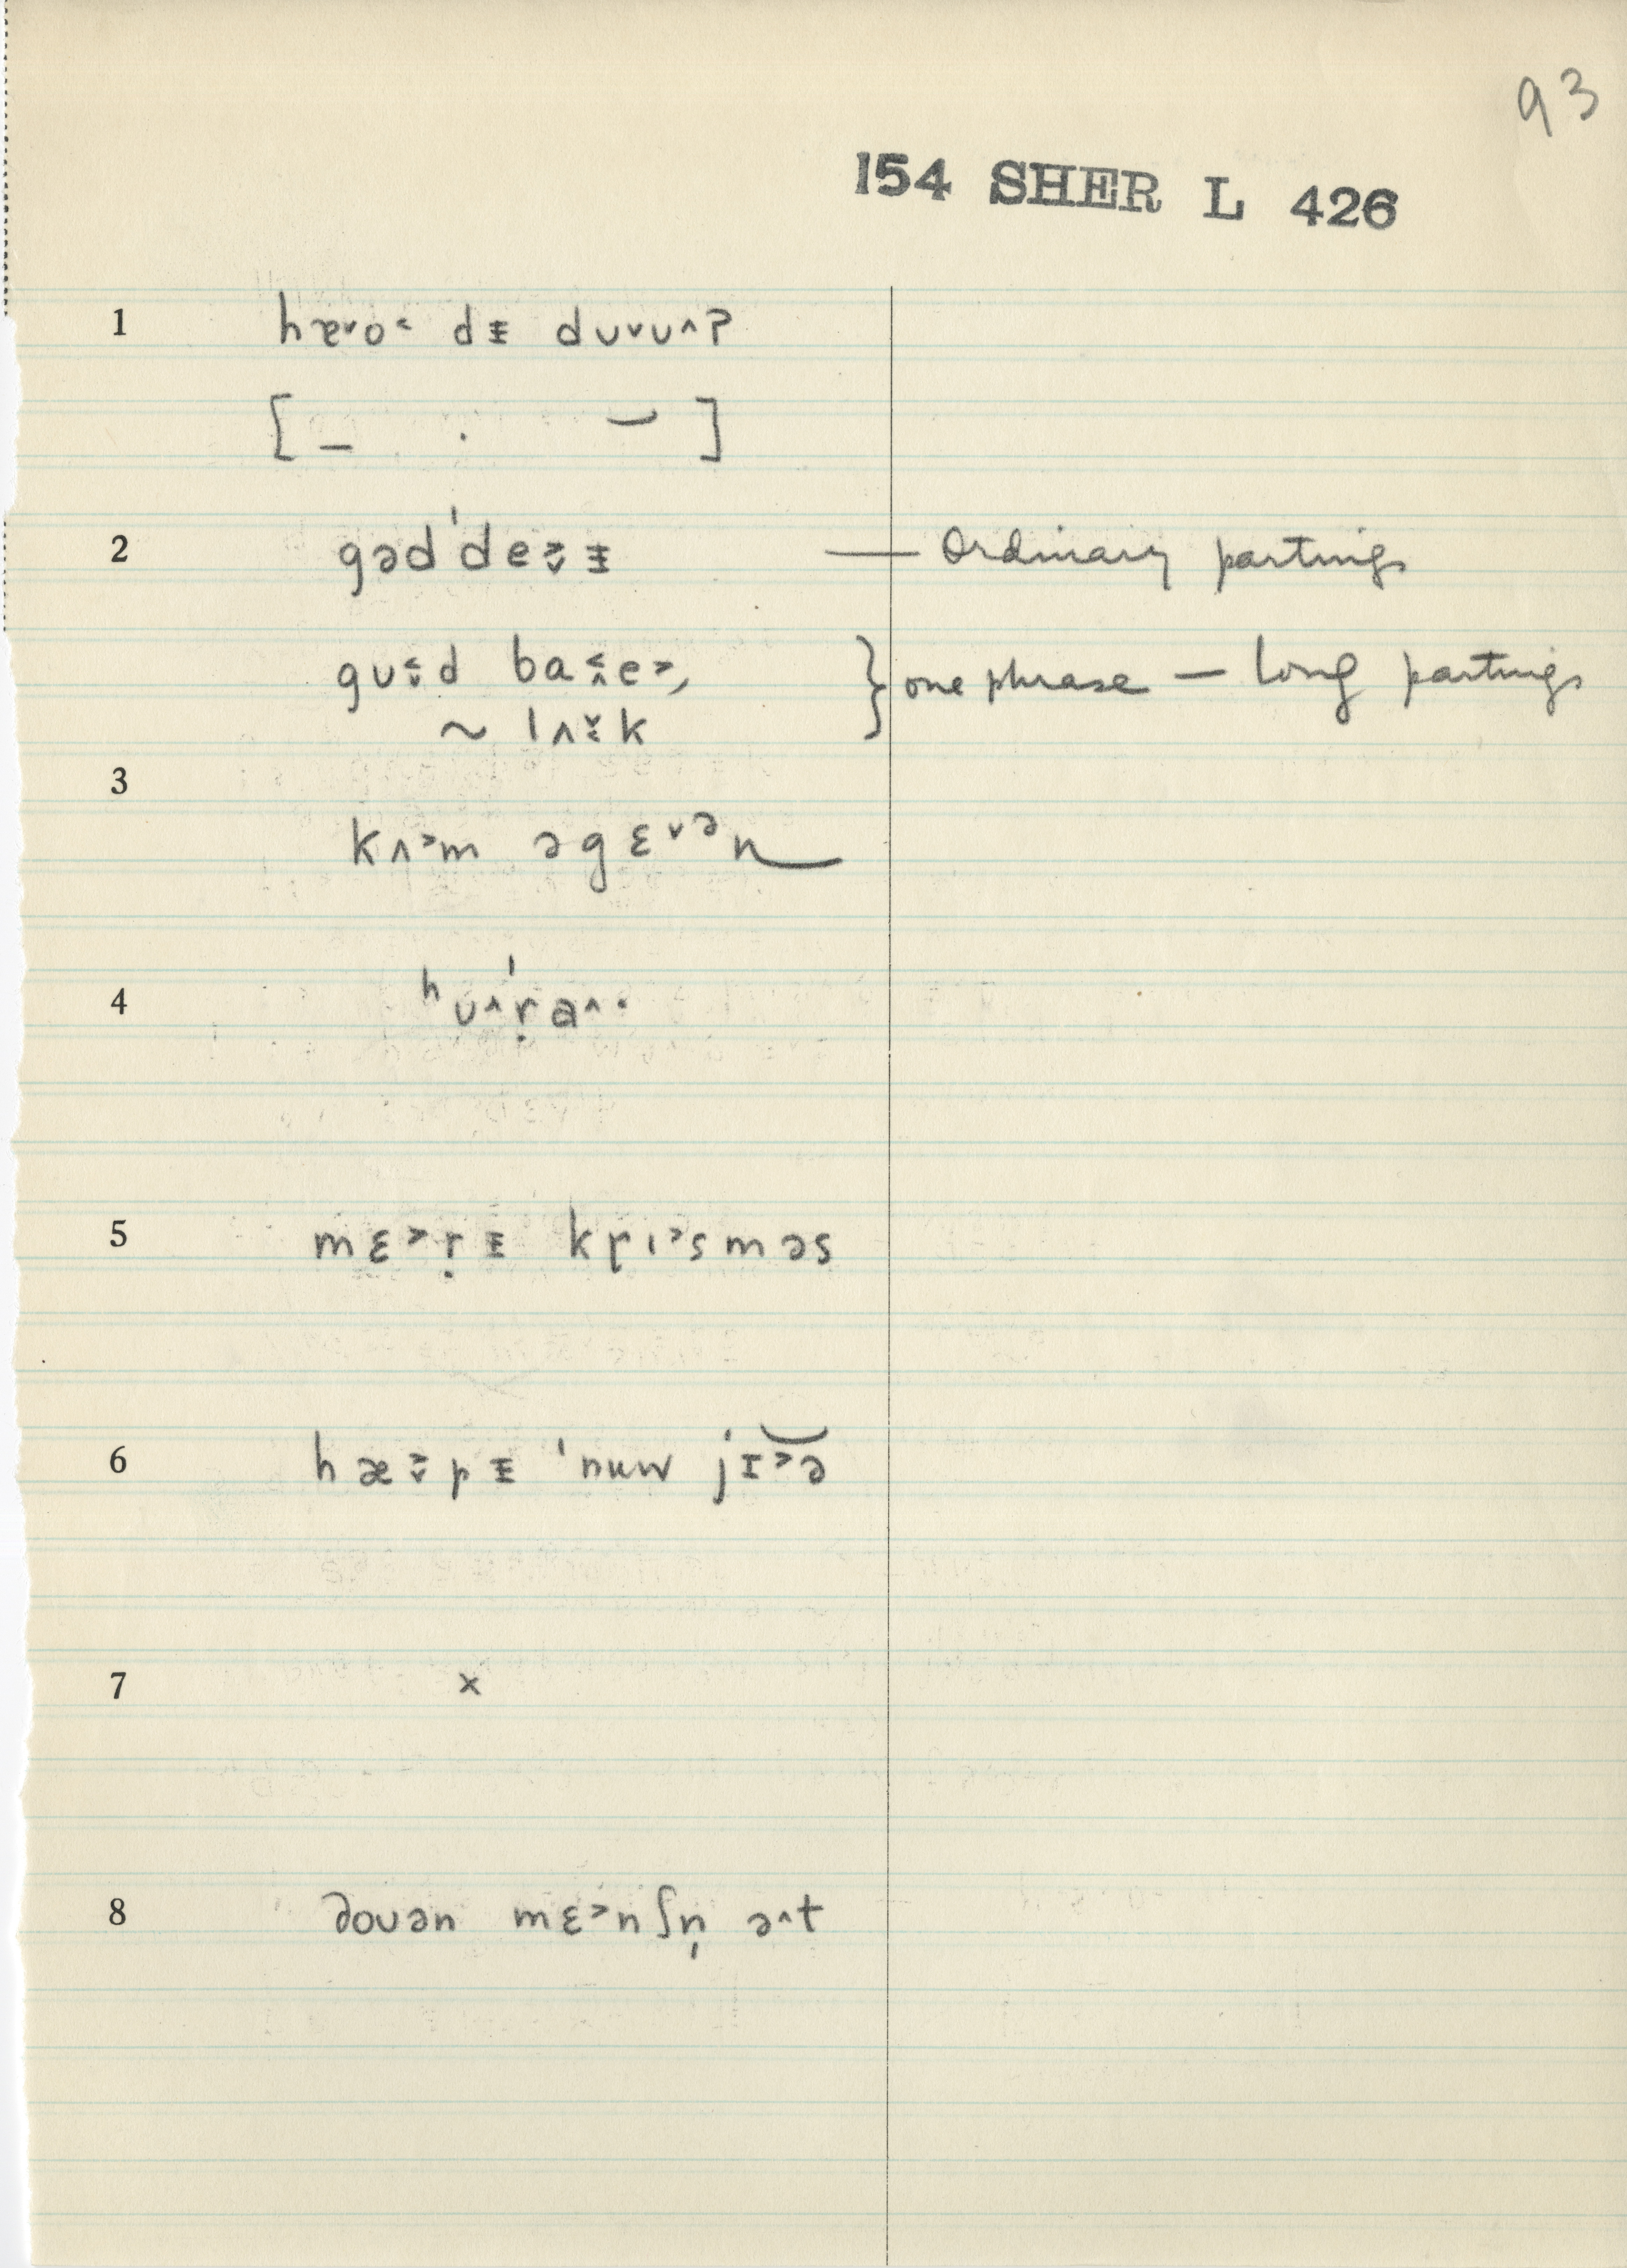 93
154 SHER L 426
1 hæ˅o˂ dᵻ du˅u˄?
[ – · ⌣ ]
2 gəd'de˲˅ᵻ — Ordinary partings
gu˂˅d ba˂˄e˃, } one phrase — long partings
~ lʌ˅˂k
3
kʌ˃m əgɛ˅ᵊn
4 ʰu˄'ṛa˄·
5 mɛ˃ṛᵻ kṛɪ˃sməs
6 hæ˃˅pᵻ 'nuw jɪ˃ə
7 x
8 douən mɛ˃nʃn̩ ə˄t